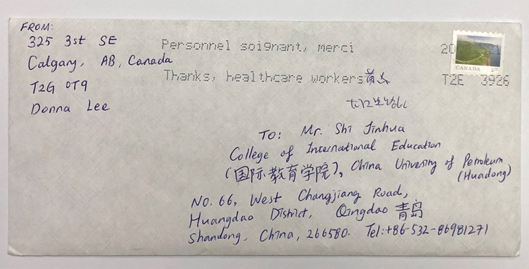 FROM:
325 3st SE
Calgary, AB, Canada
T2G 0T9
Donna Lee
Personnel soignant, merci
20
Thanks, healthcare workers
T2E 3926
CANADA
To: Mr. Shi Jinhua
College of International Education
(国际教育学院), China University of Petroleum
(Huadong)
NO. 66, West Changjiang Road,
Huangdao District, Qingdao 青岛
Shandong, China, 266580. Tel:+86-532-86981271